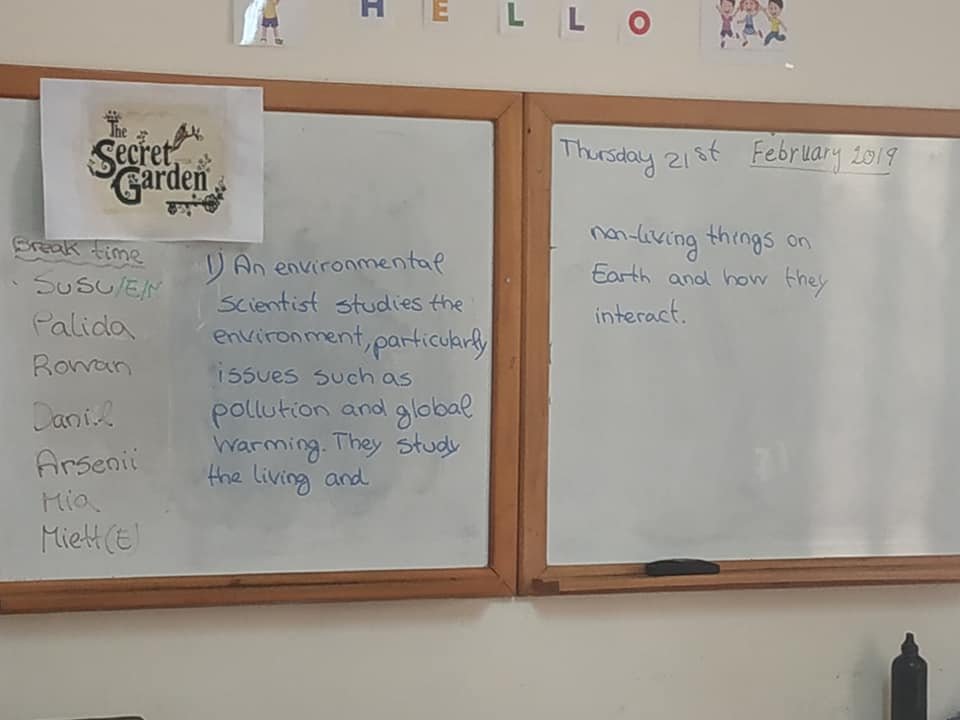 HELLO
The
Secret
Garden
Thursday 21st February 2019
Break time
SUSU/E/M
Palida
Rowan
Daniel
Arsenii
Mia
Miett(E)
1) An environmental
scientist studies the
environment, particularly
issues such as
pollution and global
warming. They study
the living and
non-living things on
Earth and how they
interact.